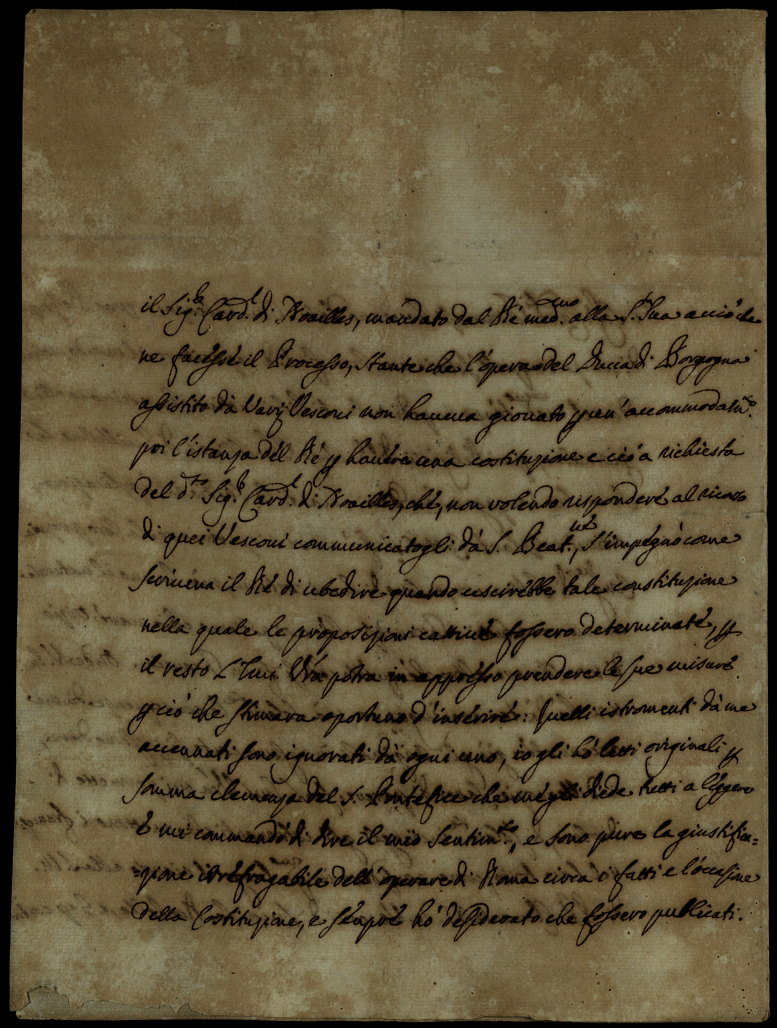 il Sig.r Card.l di Noailles, mandato dal Ré med.mo alla S.tà Sua acciò che
ne facesse il Processo, stante che l'opera del Duca di Borgogna
assistito dà varij Vesconi non haueua giouato p un' accommodam.to
poi l'istanza del Ré p hauere una costituzione e ciò a richiesta
del d.to Sig.r Card.l di Noailles, ché, non volendo rispondere al
di quei Vesconi communicatogli dà S. Beat.ne, s'impegnò come
scriueua il Ré di ubedire quando uscirebbe tale constituzione
nella quale le proposizioni cattiue fossero determinate, p
il resto potra in appresso prendere le sue misure
p ciò che stimara oportuno d'inserire: Quelli istromenti dà me
accennati sono ignorati dà ogni uno, io gli hò letti originali p
somma clemenza del S. Pontefice che me gli diede tutti a leggere
è mi commandò di dire il mio sentim.to, e sono pure la giustifica=
=zione irrefragabile dell' operare di Roma circa i fatti e l'occasione
della Costituzione, e sempre hò desiderato che fossero publicati.